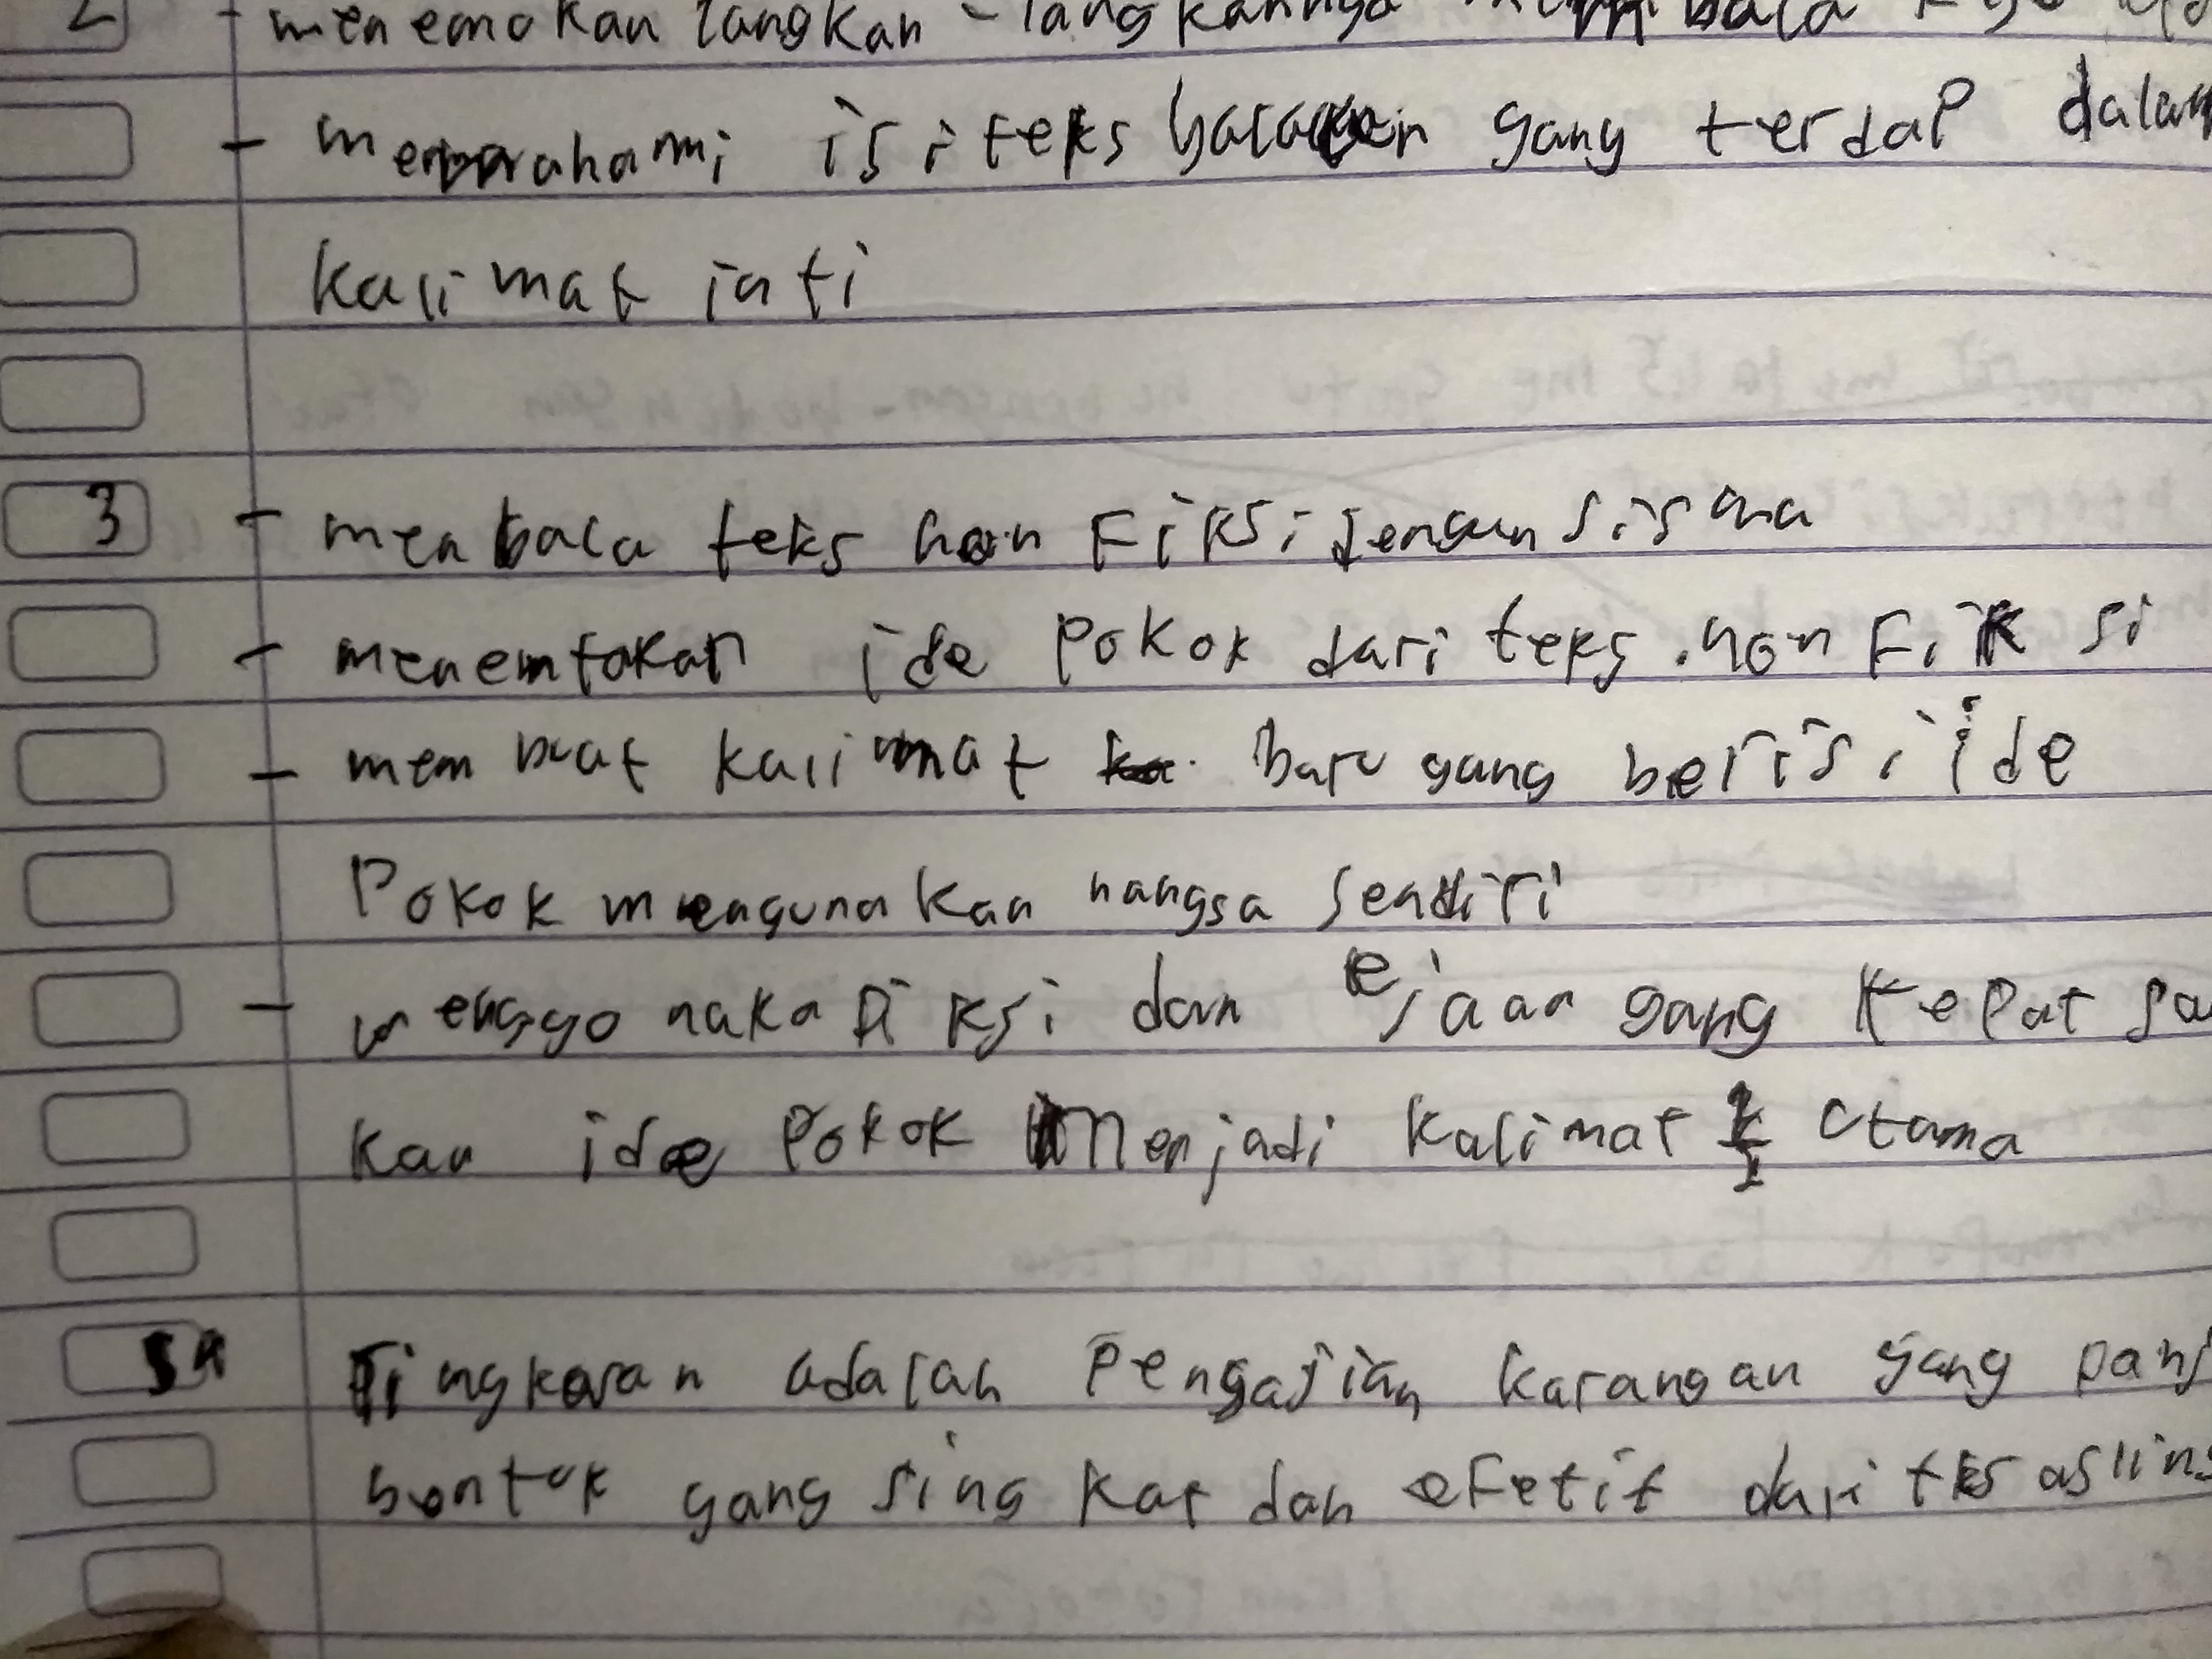 2 - menemokan langkah - langkahnnya
- memprahami isi teks yang terdap dalam
kalimat inti
3 - menbaca teks non Fiksi
- menemtokan ide Pokok dari teks non Fik si
- mem buat kalimat baru yang berisi ide
Pokok mengunakan sendiri
- menggo naka Di ksi dan ejaan yang tepat sa
kan ide Pokok menjadi kalimat utama
adalah Pengajian karangan yang panj
bentok yang sing kat dan eFetif dari tks